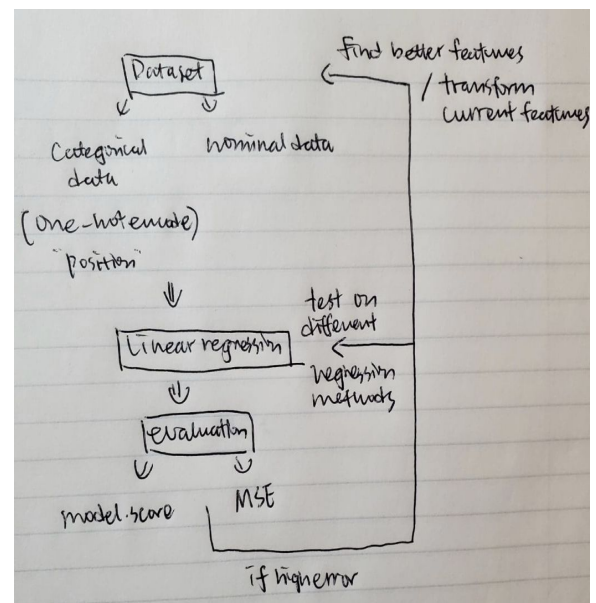 Dataset
find better features
/ transform
current features
Categorical
data
nominal data
(one-hot encode)
"position"
Linear regression
test on
different
regression
methods
evaluation
model.score
MSE
if high error